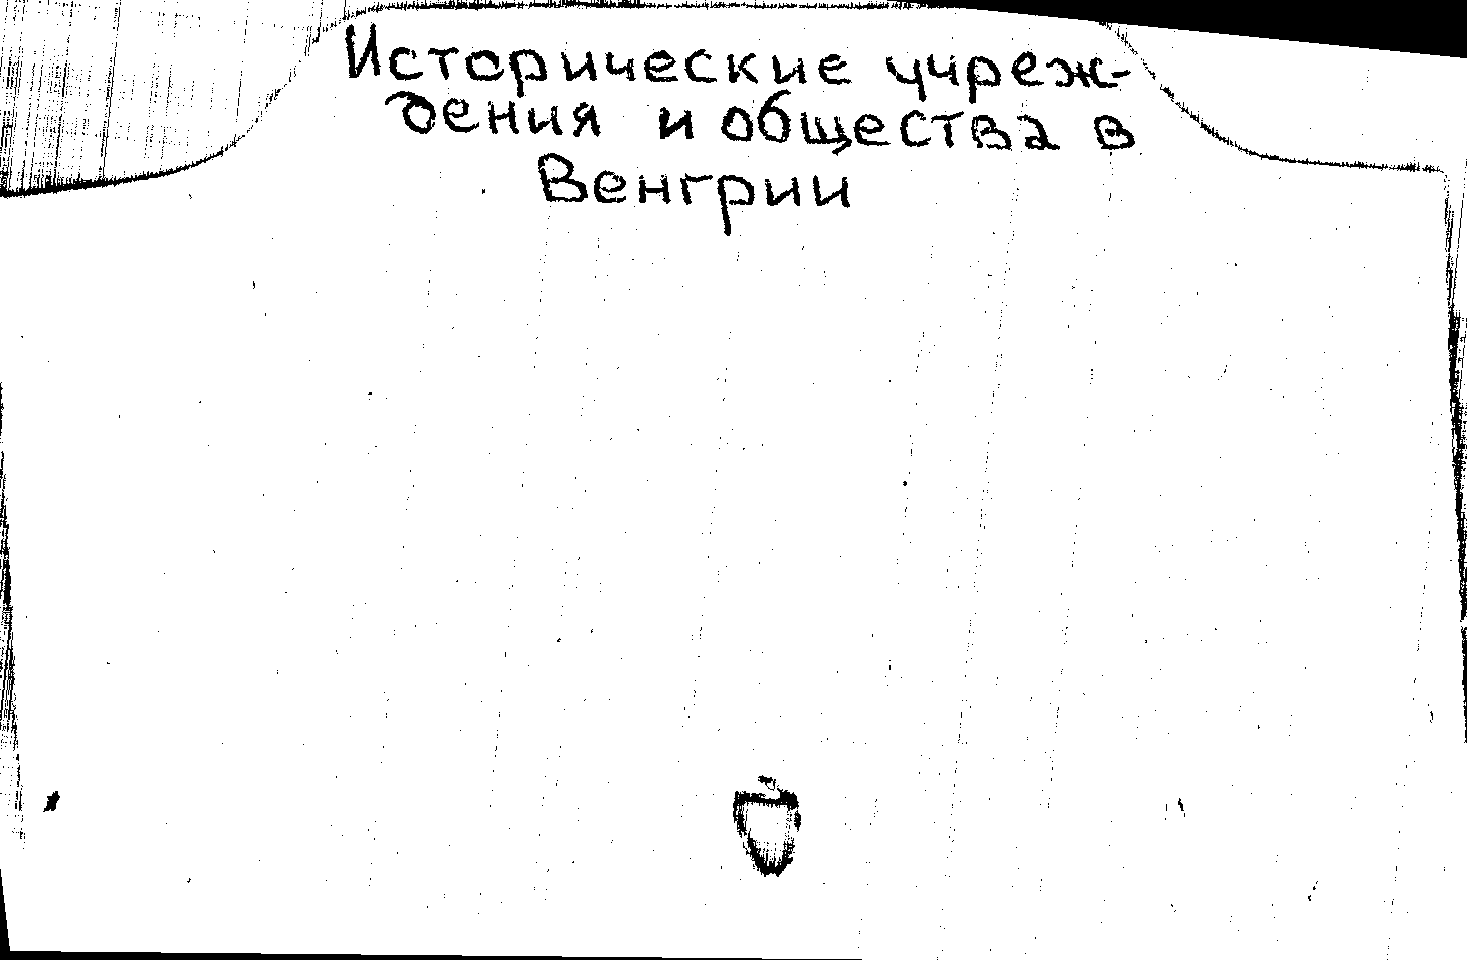 Исторические учреж-
дения и общества в
Венгрии